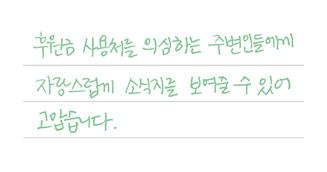 후원금 사용처를 의심하는 주변인들에게
자랑스럽게 소식지를 보여줄 수 있어
고맙습니다.